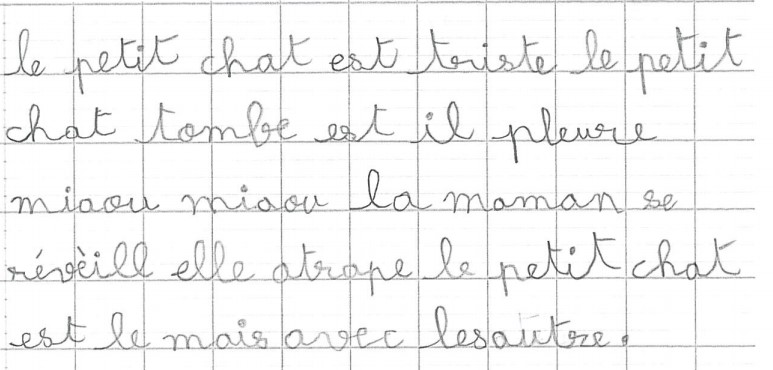 le petit chat est triste le petit
chat tombe est il pleure
miaou miaou la maman se
révèill elle atrape le petit chat
est le mais avec lesautre.